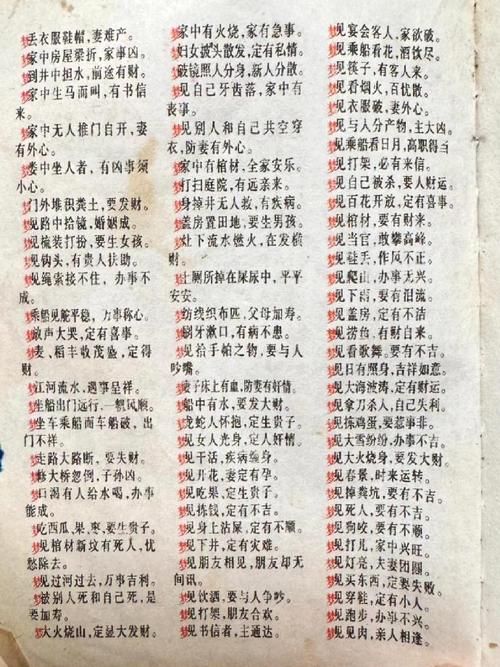 梦丢衣服鞋帽，妻难产。
梦家中房屋梁折，家事凶。
梦到井中担水，前途有财。
梦家中生马而叫，有书信
来。
梦家中无人推门自开，妻
有外心。
梦娄中坐人者，有凶事须
小心。
梦门外堆积粪土，要发财。
梦见路中拾镜，婚姻成。
梦见梳装打扮，要生女孩。
梦见钩头，有贵人扶助。
梦见绳索接不住，办事不
成。
梦乘船见舵平稳，万事称心。
梦放声大哭，定有喜事。
梦麦、稻丰收茂盛，定得
财。
梦江河流水，遇事呈祥。
梦坐船出门远行，一帆风顺。
梦坐车乘船而车船破，出
门不祥。
梦走路大路断，要失财。
梦修大桥忽倒，子孙凶。
梦口渴有人给水喝，办事
能成。
梦吃西瓜，果，枣，要生贵子。
梦见棺材新坟有死人，忧
愁除去。
梦见过河过去，万事吉利。
梦被别人死和自己死，是
要加寿。
梦大火烧山，定显大发财。
梦家中有火烧，家有急事。
梦妇女披头散发，定有私情。
梦破镜照人分身，新人分散。
梦见自己牙齿落，家中有
丧事。
梦见别人和自己共空穿
衣，防妻有外心。
梦家中有棺材，全家安乐。
梦打扫庭院，有远亲来。
梦身掉井无人救，有疾病。
梦盖房置田地，要生男孩。
梦灶下流水燃火，在发横
财。
梦上厕所掉在屎尿中，平平
安安。
梦纺线织布匹，父母加寿。
梦刷牙漱口，有病不患。
梦见拾手帕之物，要与人
吵嘴。
梦毯子床上有血，防妻有奸情。
梦船中有水，要发大财。
梦龙蛇人怀抱，定生贵子。
梦见女人光身，定人奸情。
梦见干活，疾病缠身。
梦见开花，妻定有孕。
梦见吃果，定生贵子。
梦见拣钱，定有不吉。
梦见身上沾屎，定有不顺。
梦见下井，定有灾难。
梦见朋友相见，朋友却无
间讯。
梦见饮酒，要与人争吵。
梦见打架，朋友合欢。
梦见书信者，主通达。
梦见宴会客人，家欲破。
梦见乘船看花，酒饮尽。
梦见筷子，有客人来。
梦见看烟火，百忧散。
梦见衣服破，妻外心。
梦见与人分产物，主大凶。
梦见乘船看日月，高职得当
梦见打架，必有来信。
梦见自己被杀，要人财运。
梦见百花开放，定有喜事。
梦见棺材，要有财来。
梦见当官，敢攀高峰。
梦见鞋丢，作风不正。
梦见爬山，办事无兴。
梦见下雨，要有泪流。
梦见盖房，定有不洁
梦见捞鱼，有财自来。
梦见看歌舞，要有不吉。
梦见日有照身，吉祥如意。
梦见大海波涛，定有财运。
梦见拿刀杀人，自己失利。
梦见拣鸡蛋，要惹事非。
梦见大雪纷纷，办事不吉。
梦见大火烧身，要发大财。
梦见春景，时来运转。
梦见掉粪坑，要有不吉。
梦见死人，要有不吉。
梦见狗咬，要有不顺。
梦见打儿，家中兴旺。
梦见灯亮，夫妻团圆。
梦见买东西，定要失败。
梦见穿鞋，定有小人。
梦见跑步，办事不兴。
梦见见肉，亲人相逢。